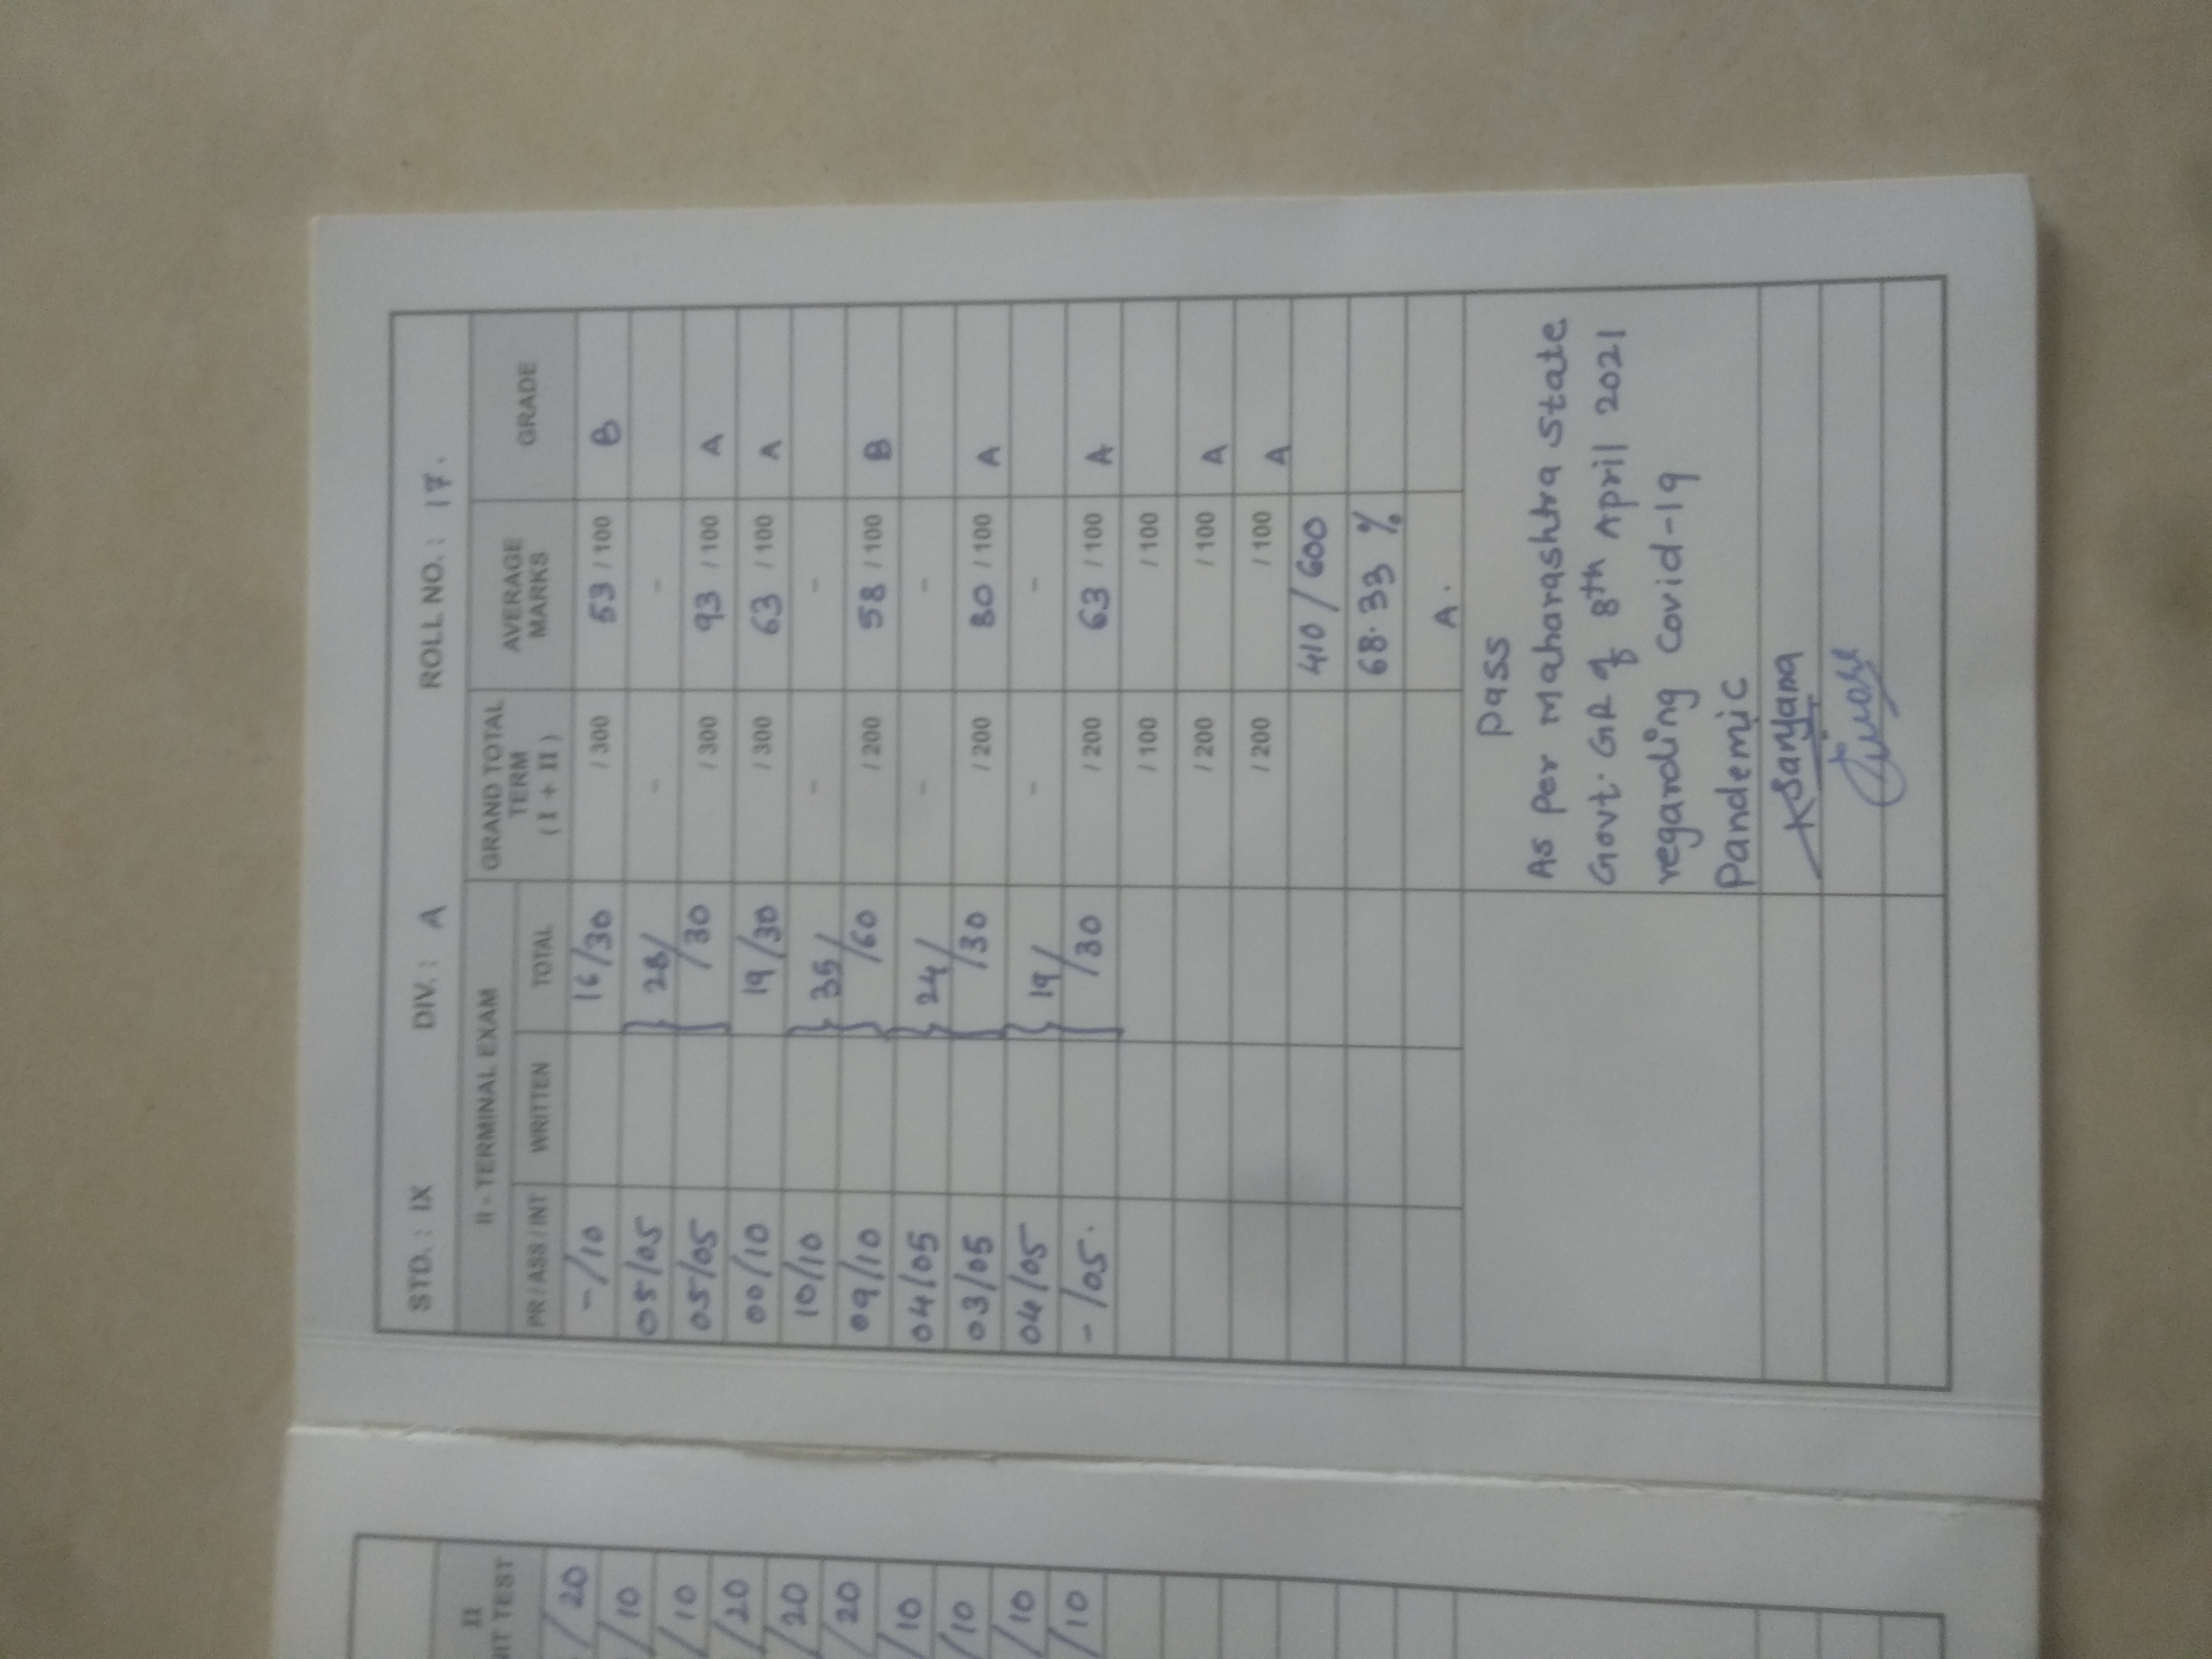 STD. : IX DIV. : A ROLL NO. : 17.
II - TERMINAL EXAM GRAND TOTAL TERM ( I + II ) AVERAGE MARKS GRADE
PR / ASS / INT WRITTEN TOTAL
-/10 16/30 / 300 53 / 100 B
05/05 28/ - -
05/05 /30 / 300 93 / 100 A
00/10 19/30 / 300 63 / 100 A
10/10 35/ - -
09/10 /60 / 200 58 / 100 B
04/05 24/ - -
03/05 /30 / 200 80 / 100 A
04/05 19/ - -
-/05. /30 / 200 63 / 100 A
/ 100 / 100
/ 200 / 100 A
/ 200 / 100 A
410/600
68.33 %
A.
Pass
As Per Maharashtra State
Govt. GR of 8th April 2021
regarding Covid-19
Pandemic
II
TEST
/20
/10
/10
/20
/20
/20
/10
/10
/10
/10